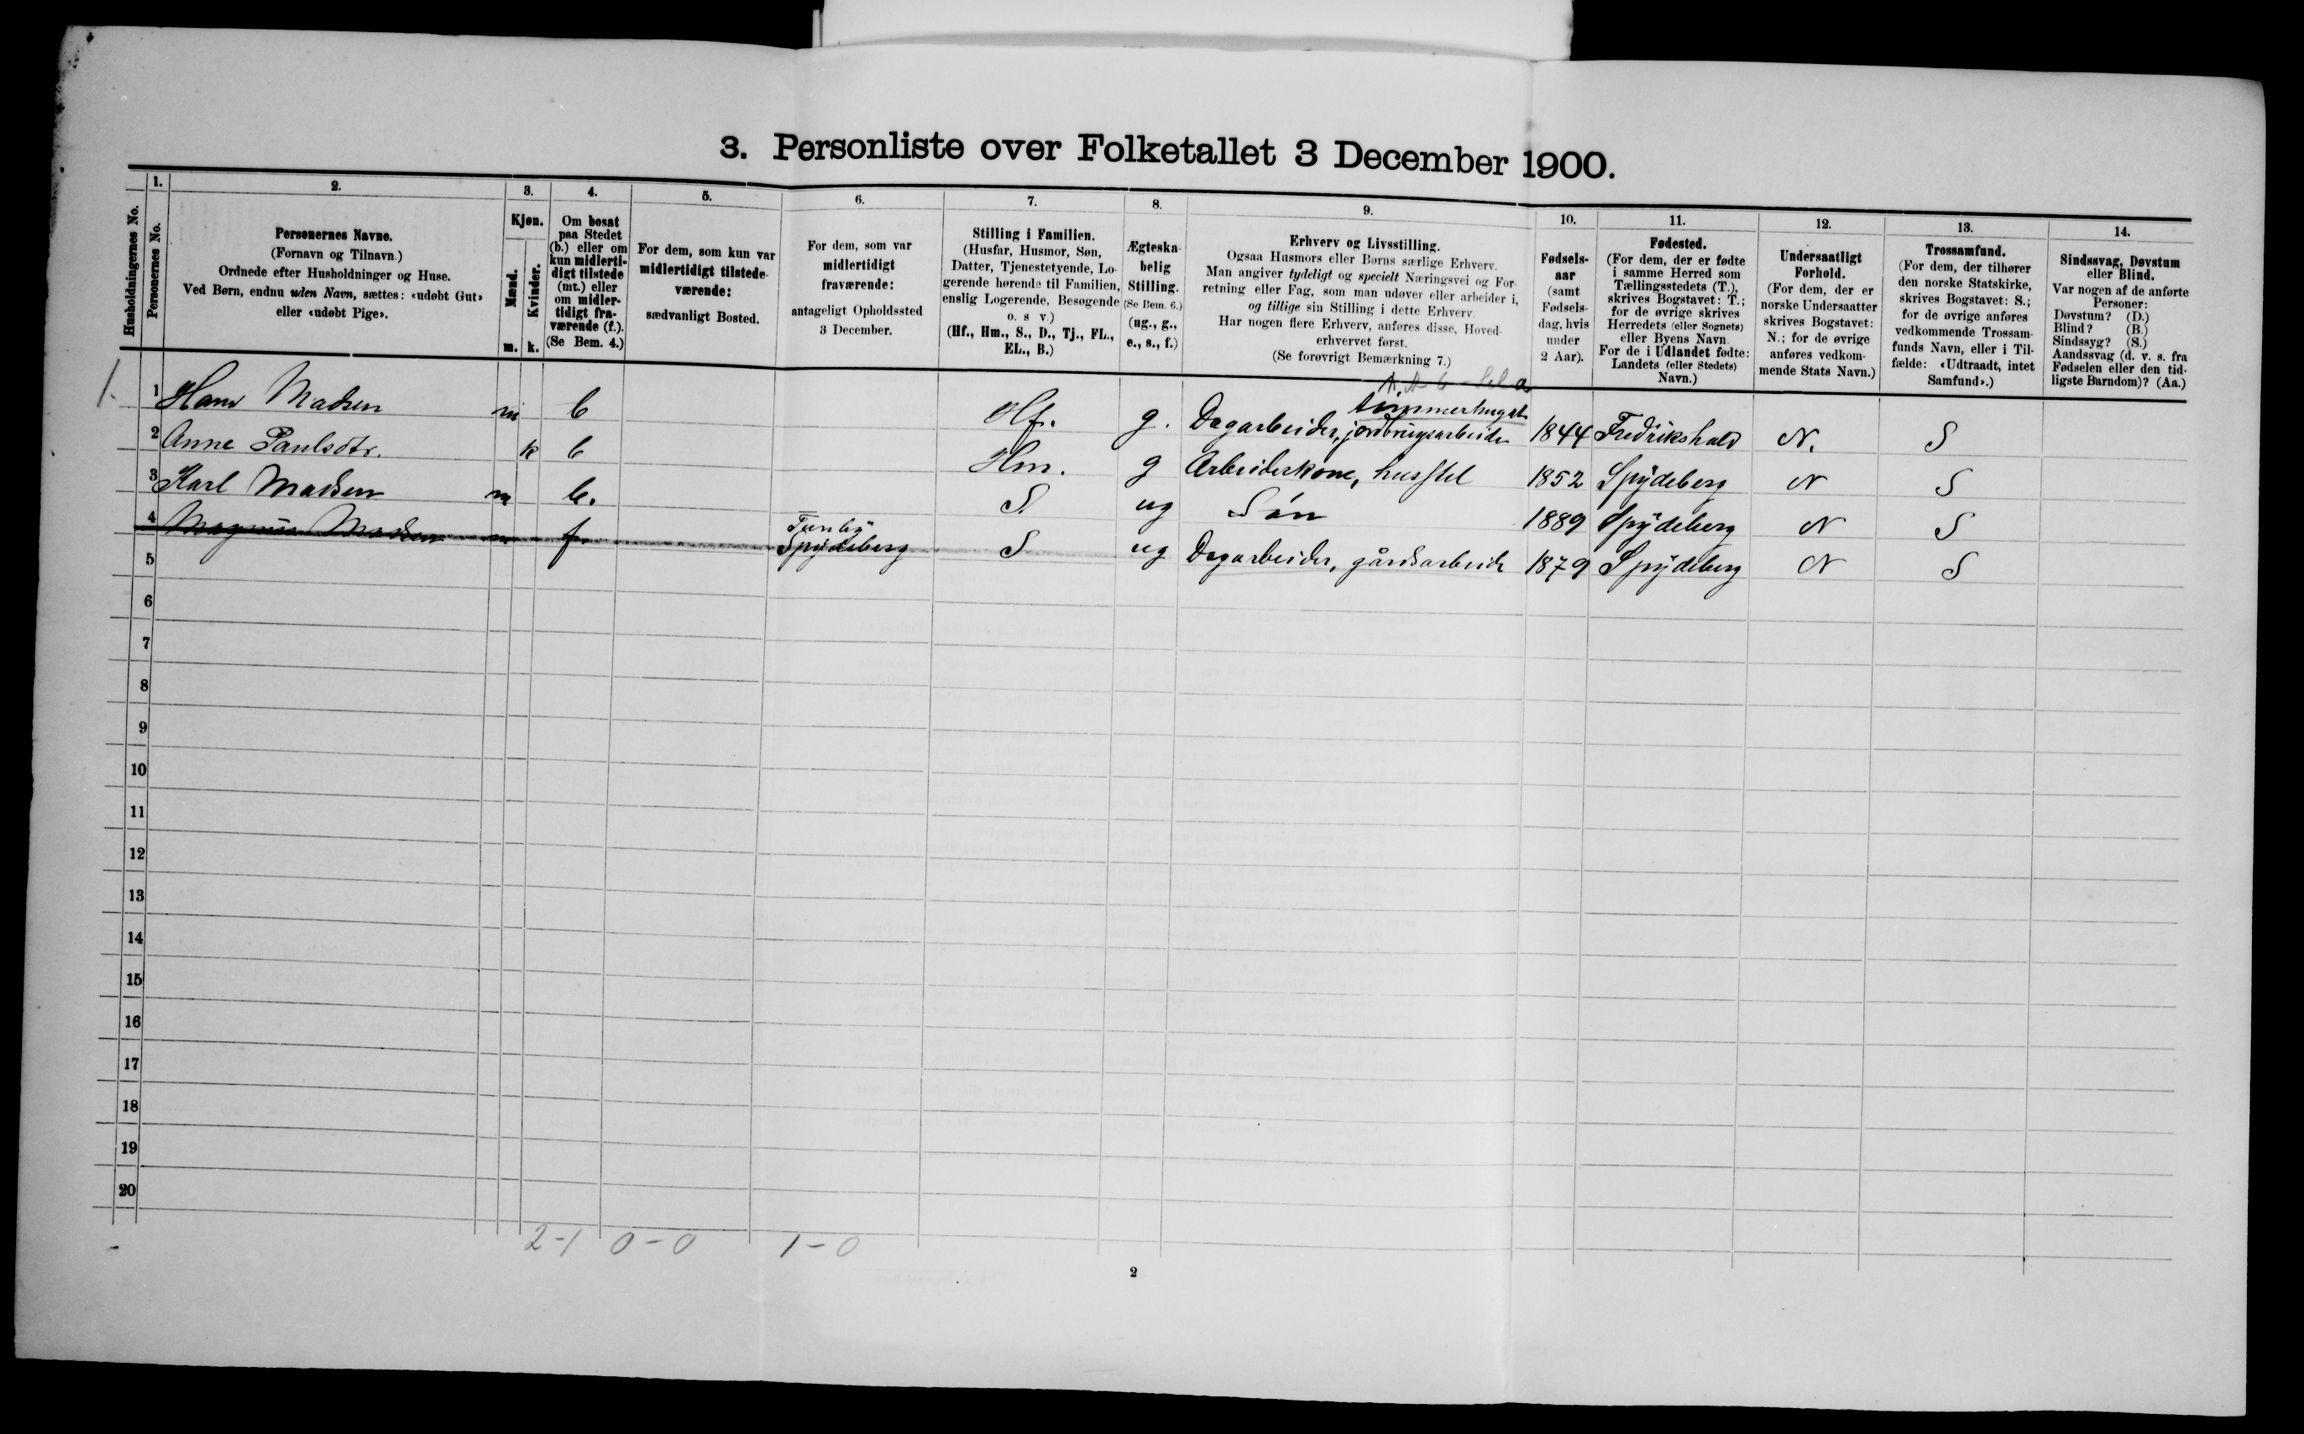 3. Personliste over Folketallet 3 December 1900.
1. 2. 3. 4. 5. 6. 7. 8. 9. 10. 11. 12. 13. 14.
Husholdningernes No.
Personernes No.
Personernes Navne.
(Fornavn og Tilnavn.)
Ordnede efter Husholdninger og Huse.
Ved Børn, endnu uden Navn, sættes: «udøbt Gut»
eller «udøbt Pige».
Kjøn.
Mænd.
Kvinder.
m. k.
Om bosat
paa Stedet
(b.) eller om
kun midlerti-
digt tilstede
(mt.) eller
om midler-
tidigt fra-
værende (f.).
(Se Bem. 4.)
For dem, som kun var
midlertidigt tilstede-
værende:
sædvanligt Bosted.
For dem, som var
midlertidigt
fraværende:
antageligt Opholdssted
3 December.
Stilling i Familien.
(Husfar, Husmor, Søn,
Datter, Tjenestetyende, Lo-
gerende hørende til Familien,
enslig Logerende, Besøgende
o. s v.)
(Hf., Hm., S., D., Tj., FL.,
EL., B.)
Ægteska-
belig
Stilling.
(Se Bem. 6.)
(ug., g.,
e., s., f.)
Erhverv og Livsstilling.
Ogsaa Husmors eller Børns særlige Erhverv.
Man angiver tydeligt og specielt Næringsvei og For-
retning eller Fag, som man udøver eller arbeider i,
og tillige sin Stilling i dette Erhverv.
Har nogen flere Erhverv, anføres disse, Hoved-
erhvervet først.
(Se forøvrigt Bemærkning 7.)
Fødsels-
aar
(samt
Fødsels-
dag, hvis
under
2 Aar).
Fødested.
(For dem, der er fødte
i samme Herred som
Tællingsstedets (T.),
skrives Bogstavet: T.;
for de øvrige skrives
Herredets (eller Sognets)
eller Byens Navn.
For de i Udlandet fødte:
Landets (eller Stedets)
Navn.)
Undersaatligt
Forhold.
(For dem, der er
norske Undersaatter
skrives Bogstavet:
N.; for de øvrige
anføres vedkom-
mende Stats Navn.)
Trossamfund.
(For dem, der tilhører
den norske Statskirke,
skrives Bogstavet: S.;
for de øvrige anføres
vedkommende Trossam-
funds Navn, eller i Til-
fælde: «Udtraadt, intet
Samfund».)
Sindssvag, Døvstum
eller Blind.
Var nogen af de anførte
Personer:
Døvstum? (D.)
Blind? (B.)
Sindssyg? (S.)
Aandssvag (d. v. s. fra
Fødselen eller den tid-
ligste Barndom)? (Aa.)
1.
tømmerhugst
1 Hans Madsen m b Hf. g. Dagarbeider, jordbrugsarbeide 1844 Fredrikshald N. S
2 Anne Paulsdtr. k b Hm. g Arbeiderkone, husstel 1852 Spydeberg N S
3 Karl Madsen m b. S. ug Søn 1889 Spydeberg N S
4 Magnus Madsen m f. Spydeberg S ug Dagarbeider, gårdsarbeide 1879 Spydeberg N S
5
6
7
8
9
10
11
12
13
14
15
16
17
18
19
20
2-1 0-0 1-0
2